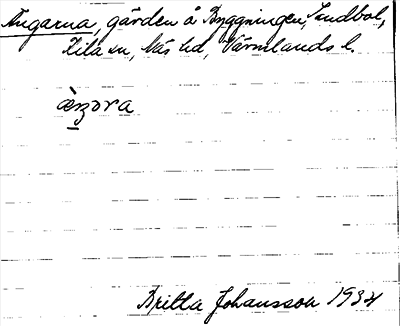 Ängarna, gården å Byggningen, Sundbol,
Kila sn, Näs hd, Värmlands l.
æ̀ŋɔra
Britta Johansson 1934